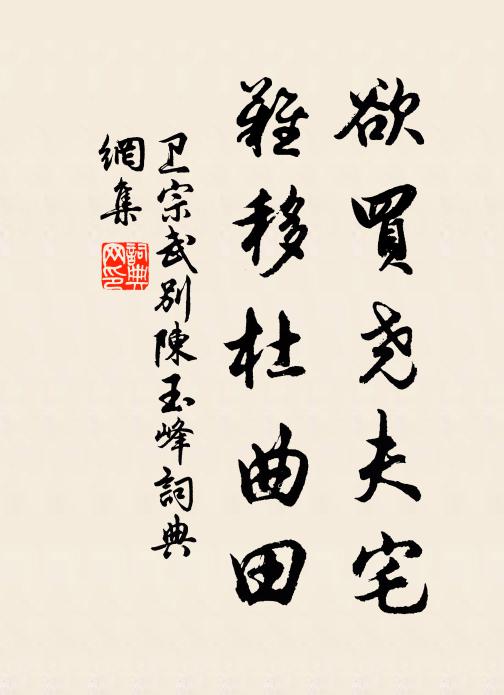 欲買尧夫宅
難移杜曲田
卫宗武别陳玉峰詞典
網集
詞典網印